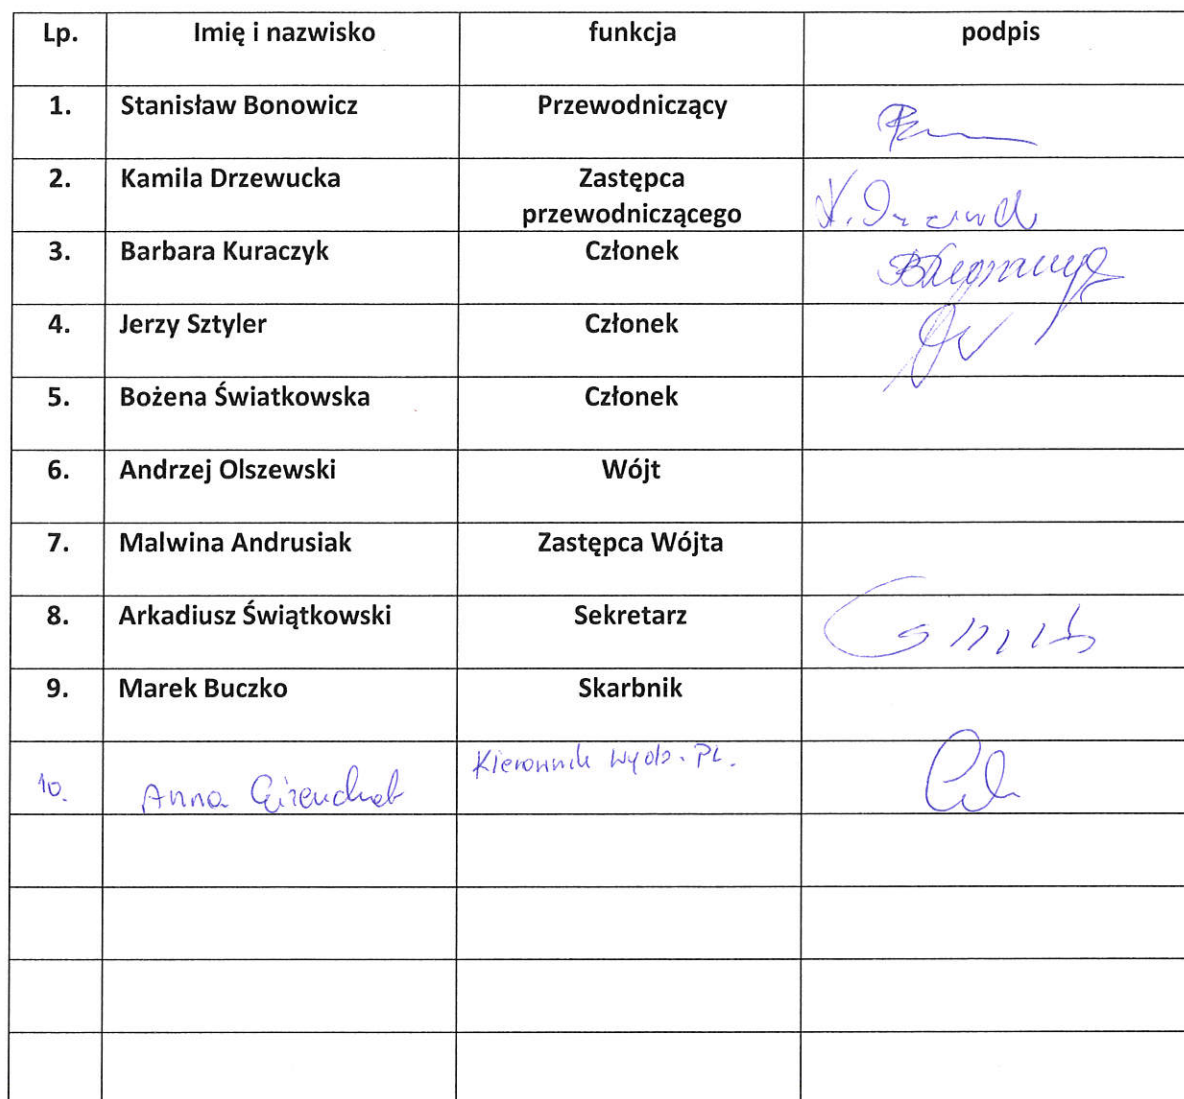 Lp. Imię i nazwisko funkcja podpis
1. Stanisław Bonowicz Przewodniczący
2. Kamila Drzewucka Zastępca
przewodniczącego
3. Barbara Kuraczyk Członek
4. Jerzy Sztyler Członek
5. Bożena Światkowska Członek
6. Andrzej Olszewski Wójt
7. Malwina Andrusiak Zastępca Wójta
8. Arkadiusz Świątkowski Sekretarz
9. Marek Buczko Skarbnik
10. Anna Kierownik